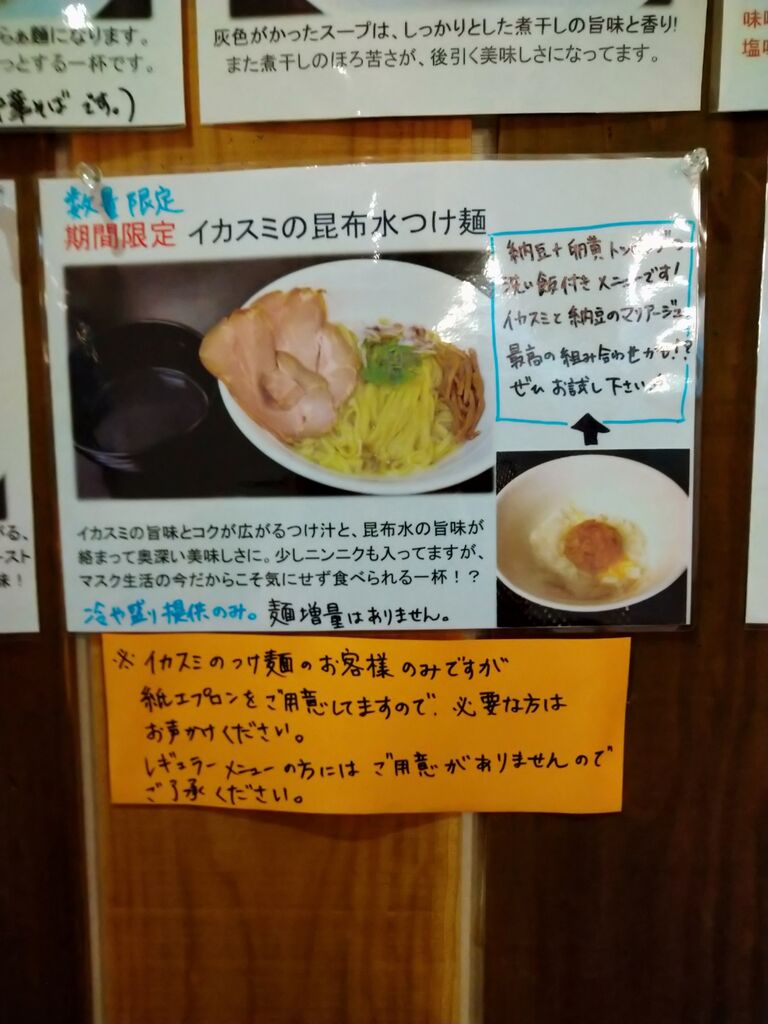 らぁ麺になります。
っとする一杯です。
華そば です。)
灰色がかったスープは、しっかりとした煮干しの旨味と香り!
また煮干しのほろ苦さが、後引く美味しさになってます。
味
塩
数量限定
期間限定 イカスミの昆布水つけ麺
納豆+卵黄
洗い飯付きメニューです!
イカスミと納豆のマリアージュ
最高の組み合わせかも!?
ぜひお試し下さい
イカスミの旨味とコクが広がるつけ汁と、昆布水の旨味が
絡まって奥深い美味しさに。少しニンニクも入ってますが、
マスク生活の今だからこそ気にせず食べられる一杯!?
冷や盛り提供のみ。麺増量はありません。
がる、
ースト
味!
※イカスミのつけ麺のお客様のみですが
紙エプロンをご用意してますので、必要な方は
お声かけください。
レギュラーメニューの方にはご用意がありませんので
ご了承ください。